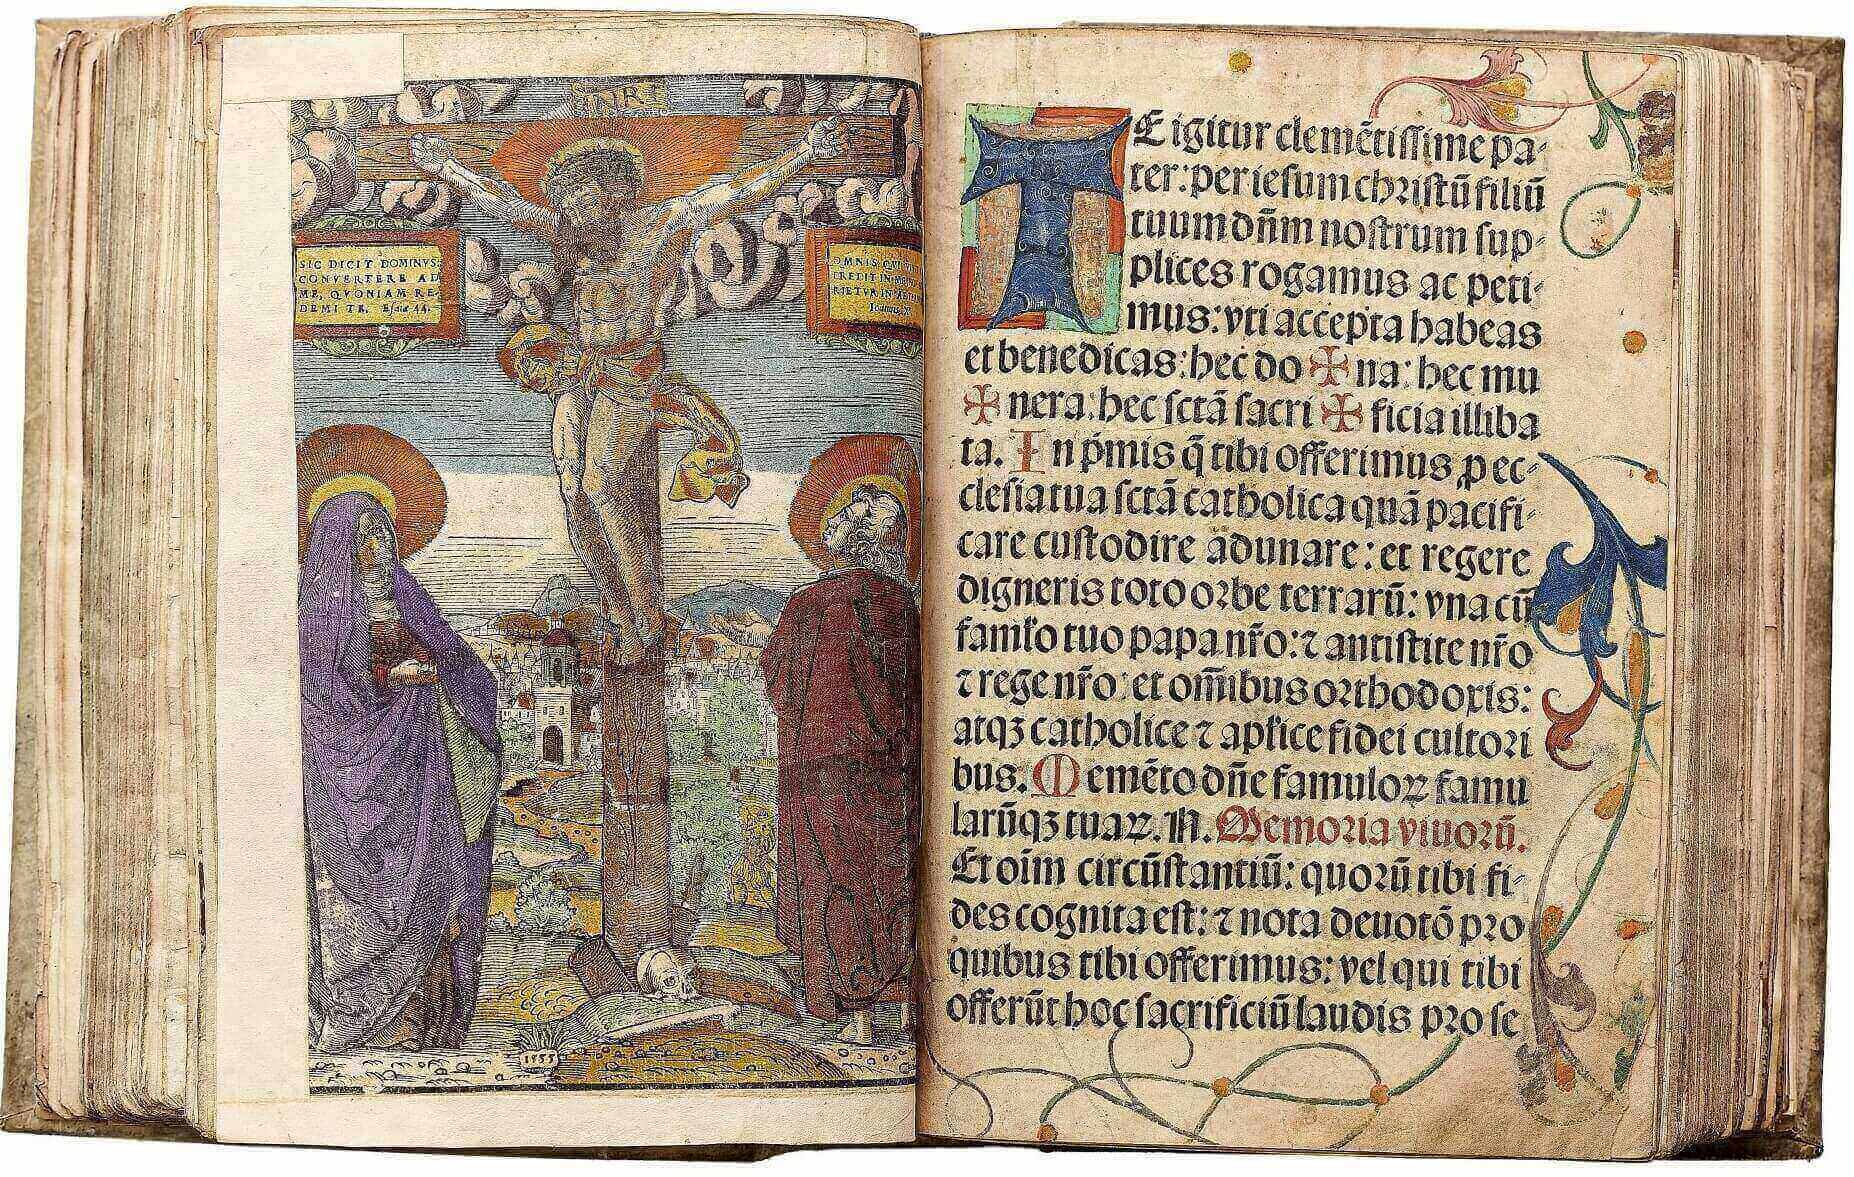 INRI
SIC DICIT DOMINVS:
CONVERTERE AD
ME, QVONIAM RE-
DEMI TE. Esaiæ 44.
OMNIS QUI
CREDIT IN ME NO
RIETVR IN ÆTER
Ioannis
1555
TE igitur clemẽtissime pa-
ter: per iesum christũ filiũ
tuum dñm nostrum sup-
plices rogamus ac peti-
mus: vti accepta habeas
et benedicas: hec do ✠ na: hec mu
✠ nera. hec sctã sacri ✠ ficia illiba
ta. In p̃mis q̃ tibi offerimus ꝓ ec-
clesia tua sctã catholica quã pacifi-
care custodire adunare: et regere
digneris toto orbe terrarũ: vna cũ
famło tuo papa nr̃o: ⁊ antistite nr̃o
⁊ rege nr̃o: et om̃ibus orthodoxis:
atqꝫ catholice ⁊ apłice fidei cultori
bus. Memẽto dñe famuloꝝ famu
larũqꝫ tuaꝝ. N. Memoria viuorũ.
Et oĩm circũstantiũ: quorũ tibi fi-
des cognita est: ⁊ nota deuotõ pro
quibus tibi offerimus: vel qui tibi
offerũt hoc sacrificiũ laudis pro se